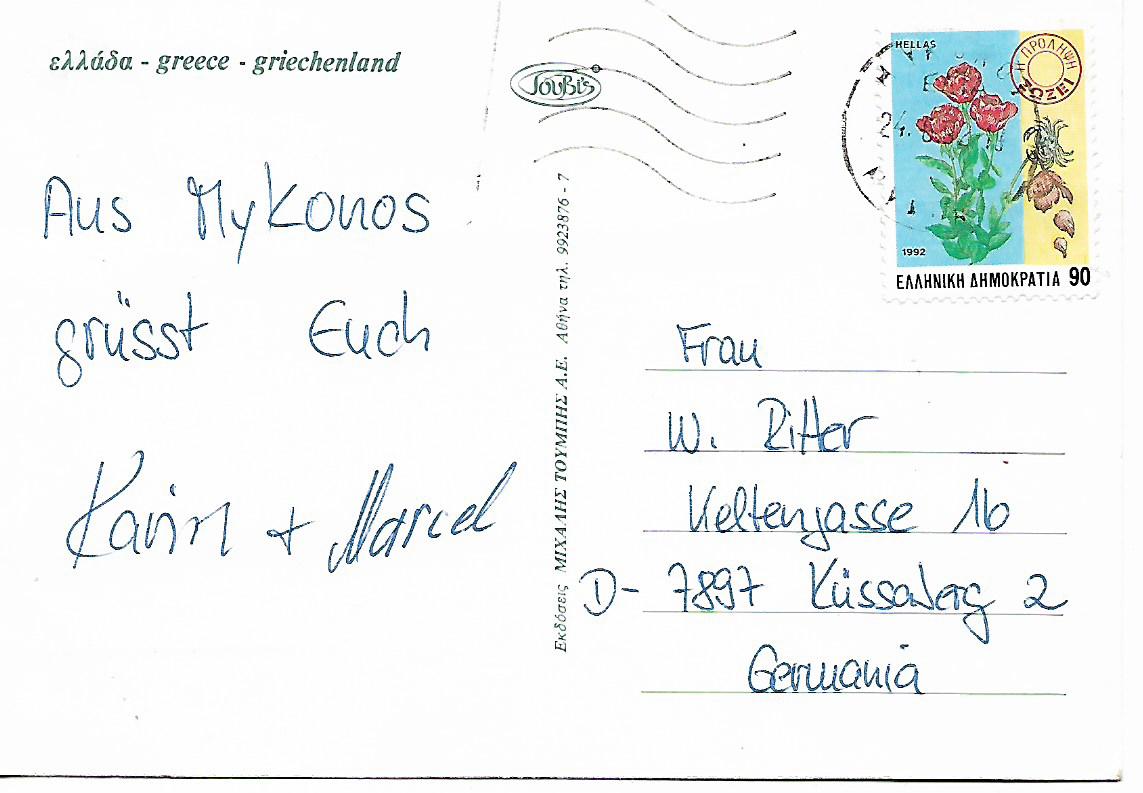 ελλάδα - greece - griechenland
Τουβi's
Aus Mykonos
grüsst Euch
Karin + Marcel
Εκδόσεις ΜΙΧΑΛΗΣ ΤΟΥΜΠΗΣ Α.Ε. Αθήνα τηλ. 9923876 - 7
HELLAS
Η ΠΡΟΛΗΨΗ
ΣΩΖΕΙ
24.
1992
ΕΛΛΗΝΙΚΗ ΔΗΜΟΚΡΑΤΙΑ 90
Frau
W. Ritter
Keltengasse 16
D- 7897 Küssaberg 2
Germania